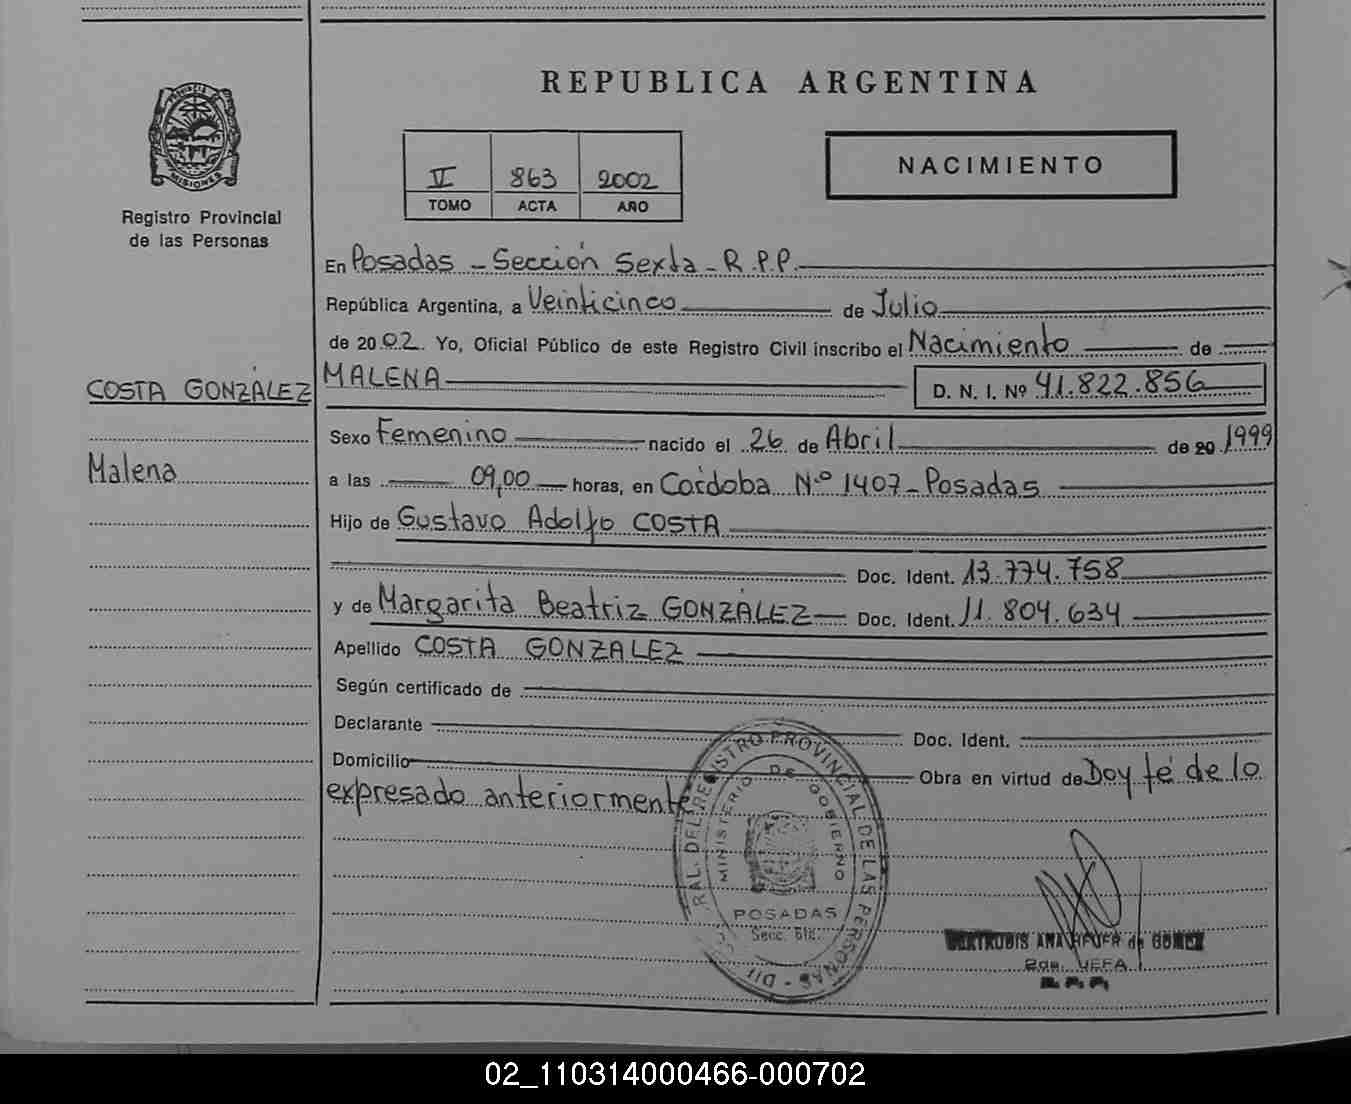 REPUBLICA ARGENTINA
PROVINCIA DE
MISIONES
Registro Provincial
de las Personas
VI 863 2002
TOMO ACTA AÑO
NACIMIENTO
En Posadas - Sección Sexta - R.P.P.
República Argentina, a Veinticinco de Julio
de 2002. Yo, Oficial Público de este Registro Civil inscribo el Nacimiento de
COSTA GONZÁLEZ
Malena
MALENA D. N. I. Nº 41.822.856
Sexo Femenino nacido el 26 de Abril de 20 1999
a las 09,00 horas, en Córdoba N.º 1407-Posadas
Hijo de Gustavo Adolfo COSTA
Doc. Ident. 13.774.758
y de Margarita Beatriz GONZÁLEZ Doc. Ident. 11.804.634
Apellido COSTA GONZALEZ
Según certificado de
Declarante Doc. Ident.
Domicilio Obra en virtud de Doy fé de lo
expresado anteriormente
RAL. DEL REGISTRO PROVINCIAL DE LAS PERSONAS - DIR
MINISTERIO DE GOBIERNO
POSADAS
Secc. 6ta.
ANA de GOMEZ
2da. JEFA
R. P. P.
02_110314000466-000702